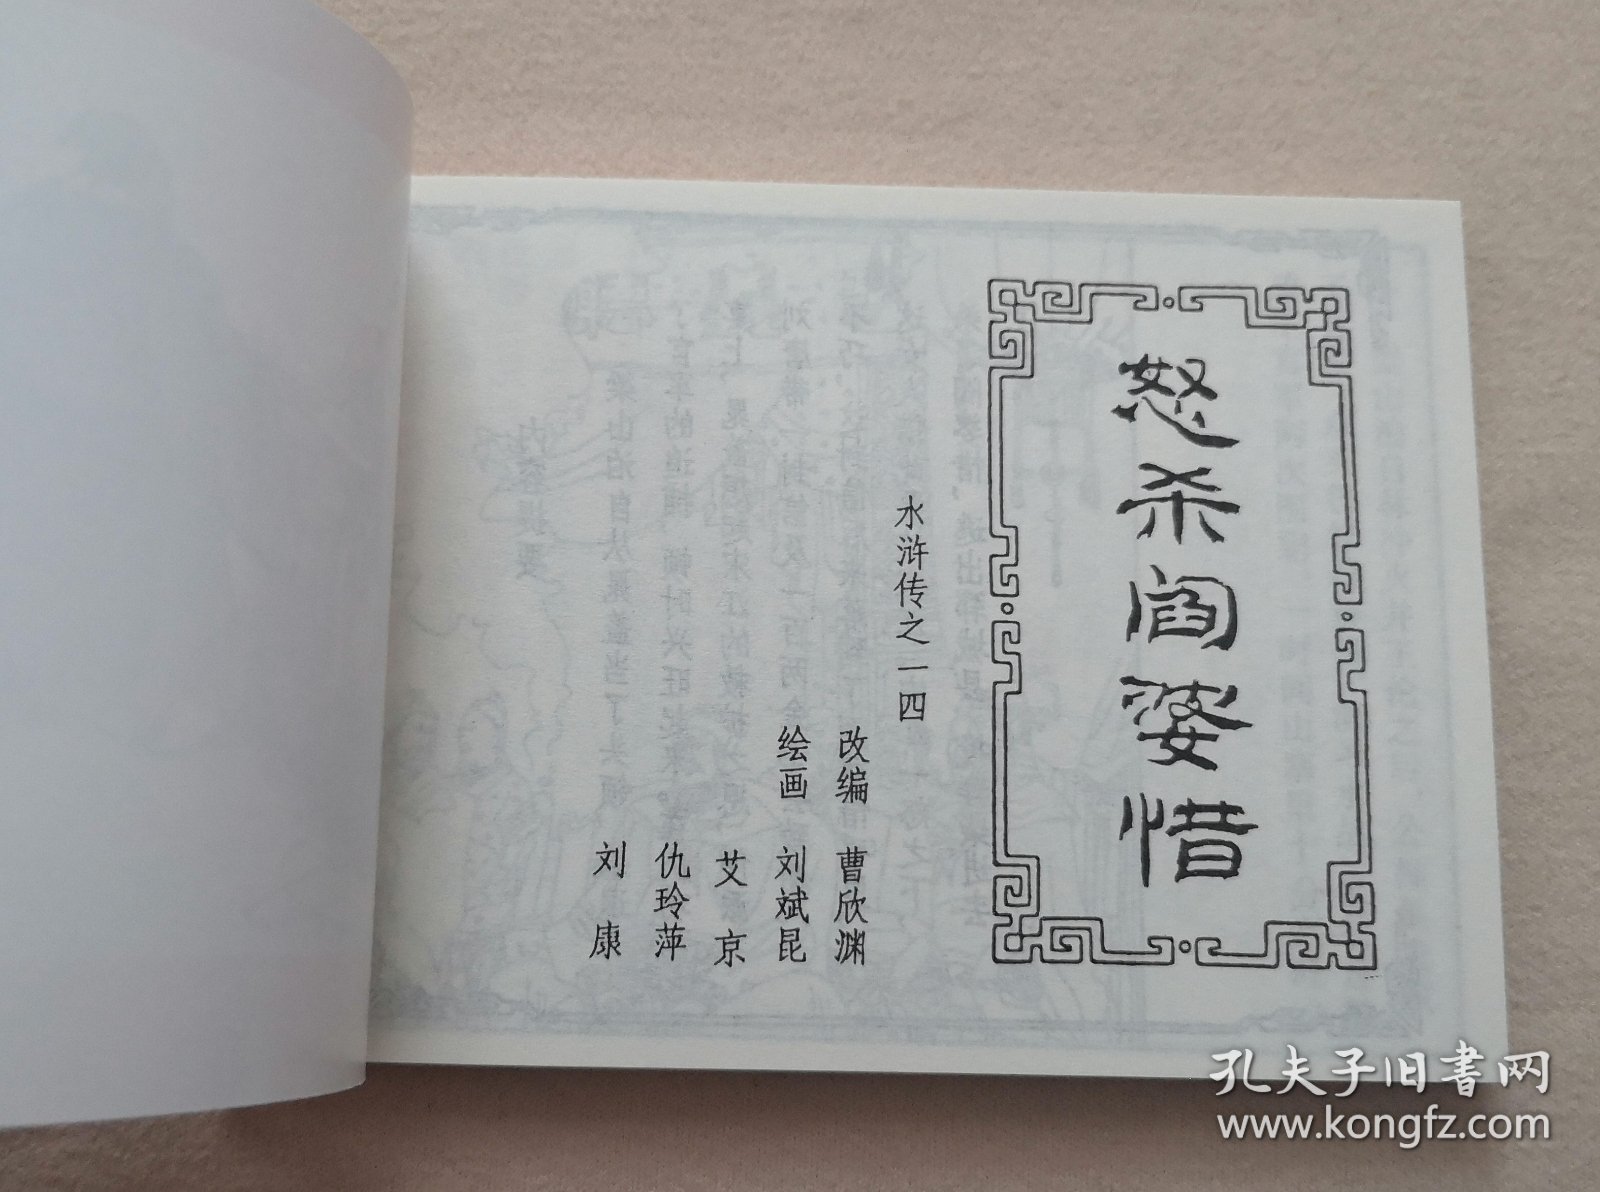 怒杀阎婆惜
水浒传之一四
改编 曹欣渊
绘画 刘斌昆
艾京
仇玲萍
刘康
孔夫子旧书网
www.kongfz.com